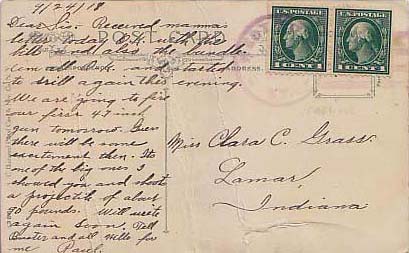 9/24/18
Dear Sis. Received mamma's
letter today O.K. with the
bill and also the bundle.
I'm all O.K. and started
to drill again this evening.
We are going to fire
our first 4.7 inch
gun tomorrow. Guess
there will be some
excitement then. Its
one of the big ones I
showed you and shoots
a projectile of about
70 pounds. Will write
again soon. Tell
Buster and all hello for
me Paul.
POST CARD
ADDRESS.
U.S. POSTAGE
1 CENT 1
U.S. POSTAGE
1 CENT 1
Miss Clara C. Grass.
Lamar,
Indiana